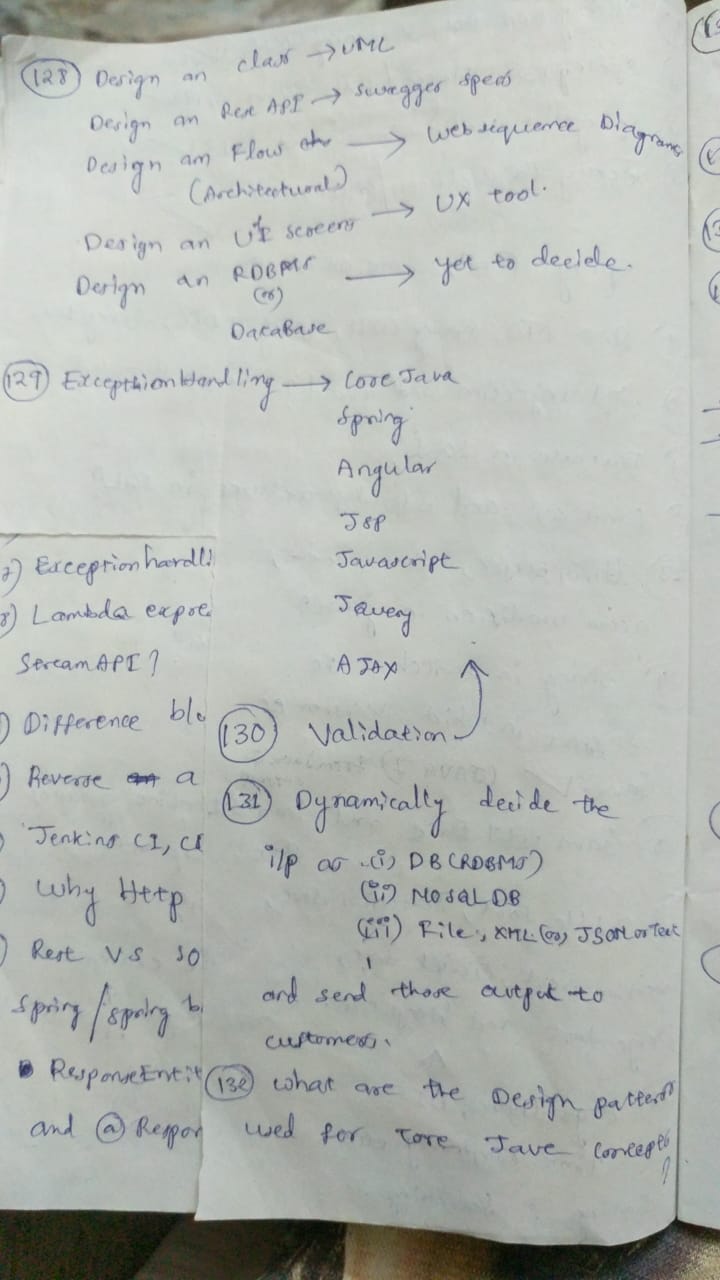 (128) Design an class → UML
Design an Rest API → Swagger specs
Design an Flow → Web sequence Diagrams
(Architectural)
Design an UI screens → UX tool.
Design an RDBMS → yet to decide.
(or)
DataBase
(129) Excepthion Handling → Core Java
Spring
Angular
JSP
Javascript
Jquery
AJAX
(130) Validation
(131) Dynamically decide the
i/p as (i) DB (RDBMS)
(ii) NOSQL DB
(iii) File, XML (or) JSON or Text
and send those output to
customers.
(132) What are the Design patterns
used for Core Java concepts
?
7) Exception handli
8) Lambda expre
Stream API ?
Difference b/w
Reverse a
Jenkins CI, C
Why Http
Rest VS SO
Spring / spring b
ResponseEntit
and @ Respon